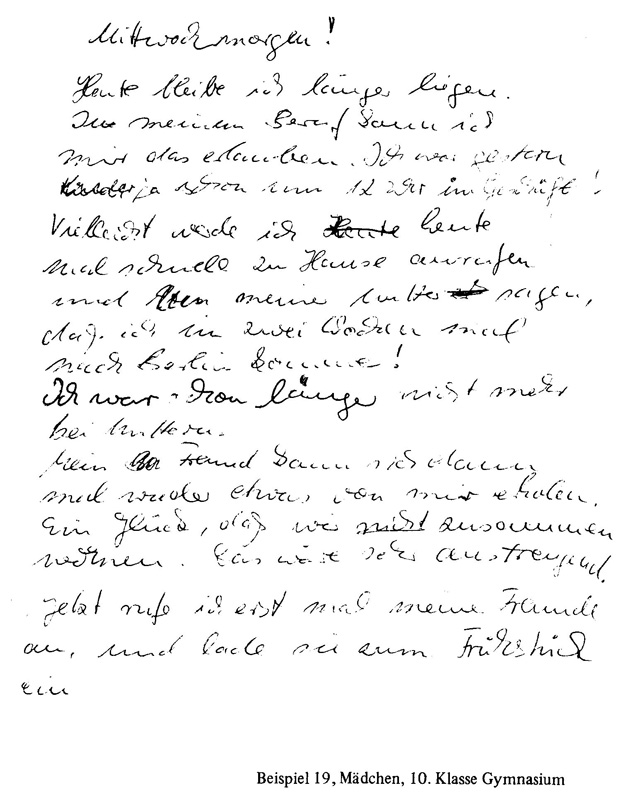 Mittwochmorgen!
Heute bleibe ich länger liegen.
In meinem Beruf kann ich
mir das erlauben. Ich war gestern
ja schon um 12 Uhr im Geschäft!
Vielleicht werde ich heute
mal schnell zu Hause anrufen
und meine Mutter sagen,
daß ich in zwei Wochen mal
nach Berlin komme!
Ich war schon länger nicht mehr
bei Muttern.
Mein Freund kann sich dann
mal wieder etwas von mir erholen.
Ein Glück, daß wir nicht zusammen
wohnen. Das wäre sehr anstrengend.
Jetzt rufe ich erst mal meine Freunde
an, und lade sie zum Frühstück
ein
Beispiel 19, Mädchen, 10. Klasse Gymnasium